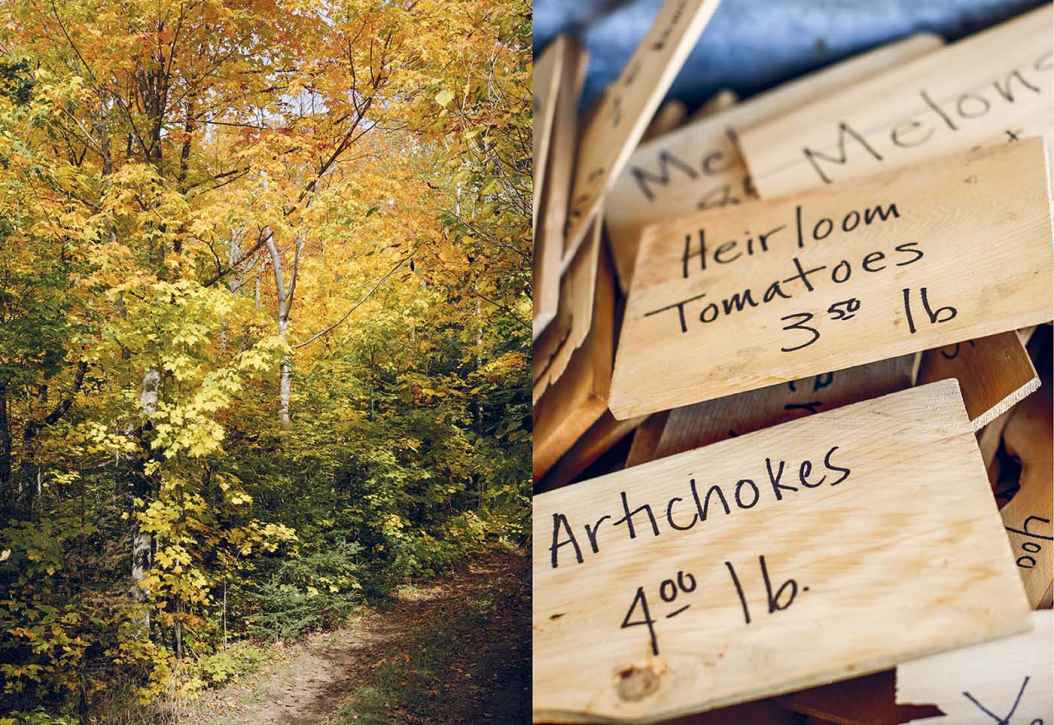 Me
Melons
Heirloom
Tomatoes
3⁵⁰ lb
Artichokes
4⁰⁰ lb.